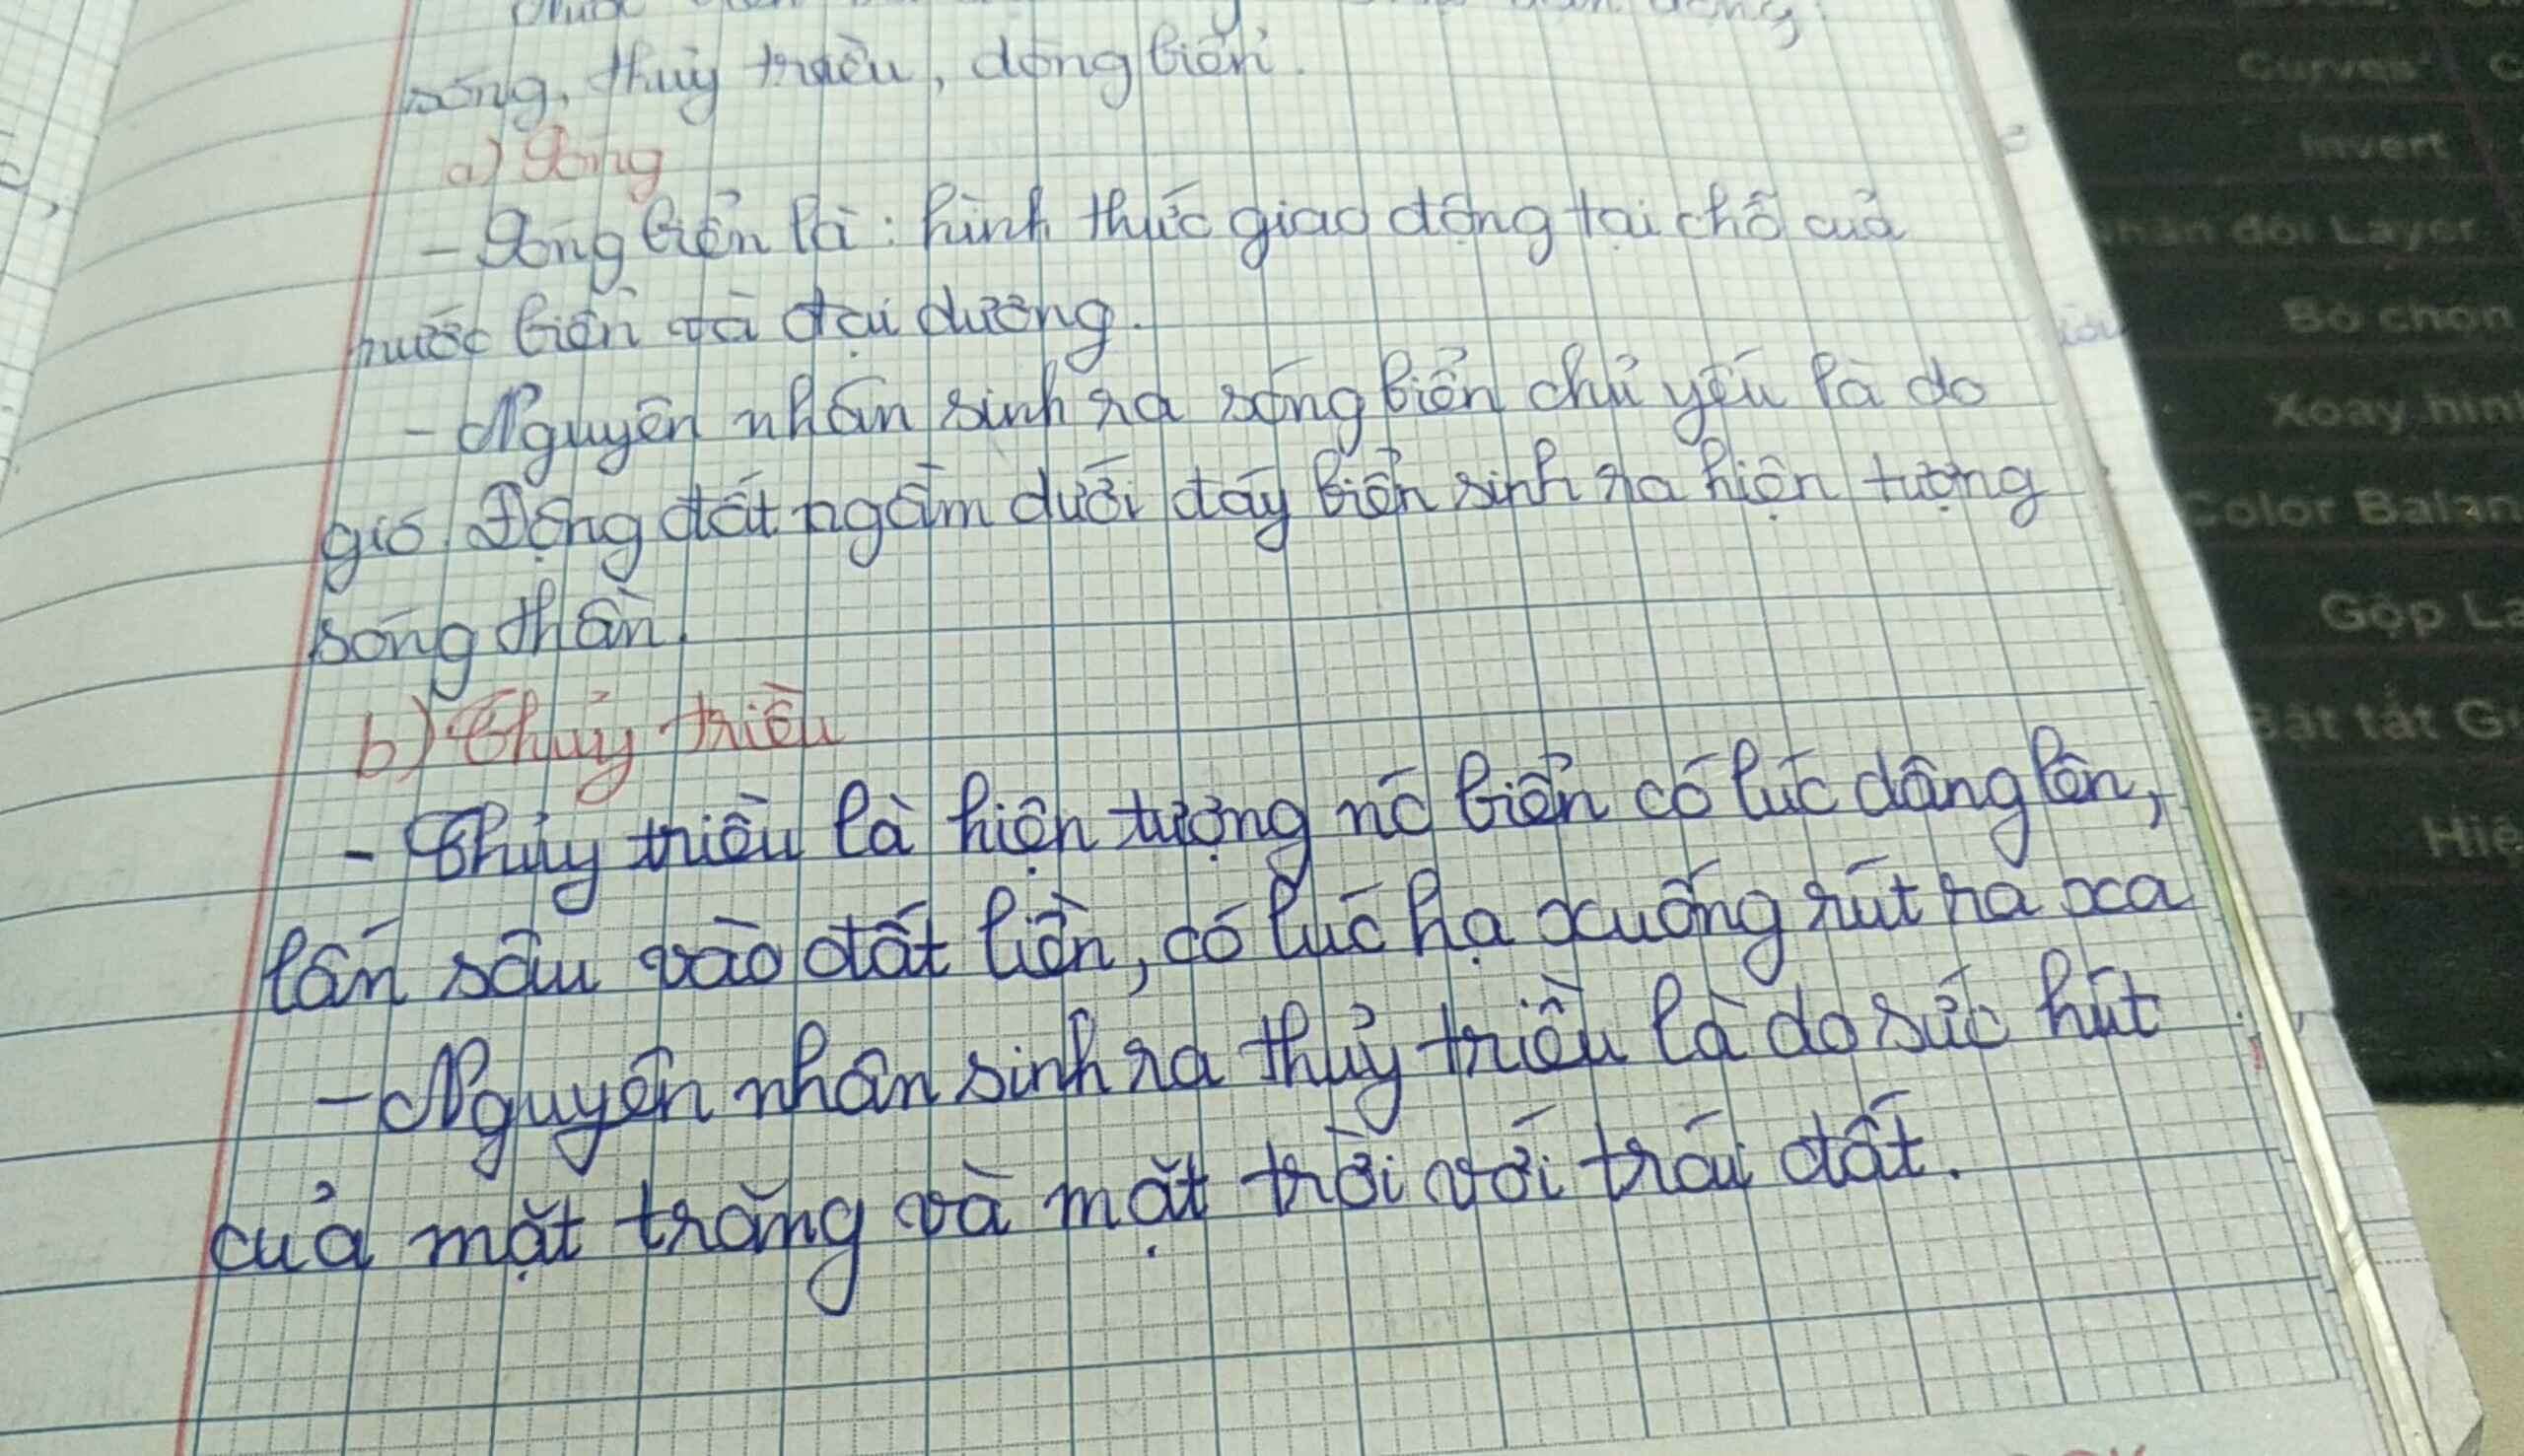 sóng, thuỷ triều, dòng biển.
a) Sóng
- Sóng biển là: hình thức giao động tại chỗ của
nước biển và đại dương.
- Nguyên nhân sinh ra sóng biển chủ yếu là do
gió. Động đất ngầm dưới đáy biển sinh ra hiện tượng
sóng thần.
b) Thủy triều
- Thủy triều là hiện tượng nc biển có lúc dâng lên,
lấn sâu vào đất liền, có lúc hạ xuống rút ra xa
- Nguyên nhân sinh ra thủy triều là do sức hút
của mặt trăng và mặt trời với trái đất.
Curves
Invert
Nhân đôi Layer
Bỏ chọn
Xoay hìn
Color Balan
Gộp La
Bật tắt G
Hiệ